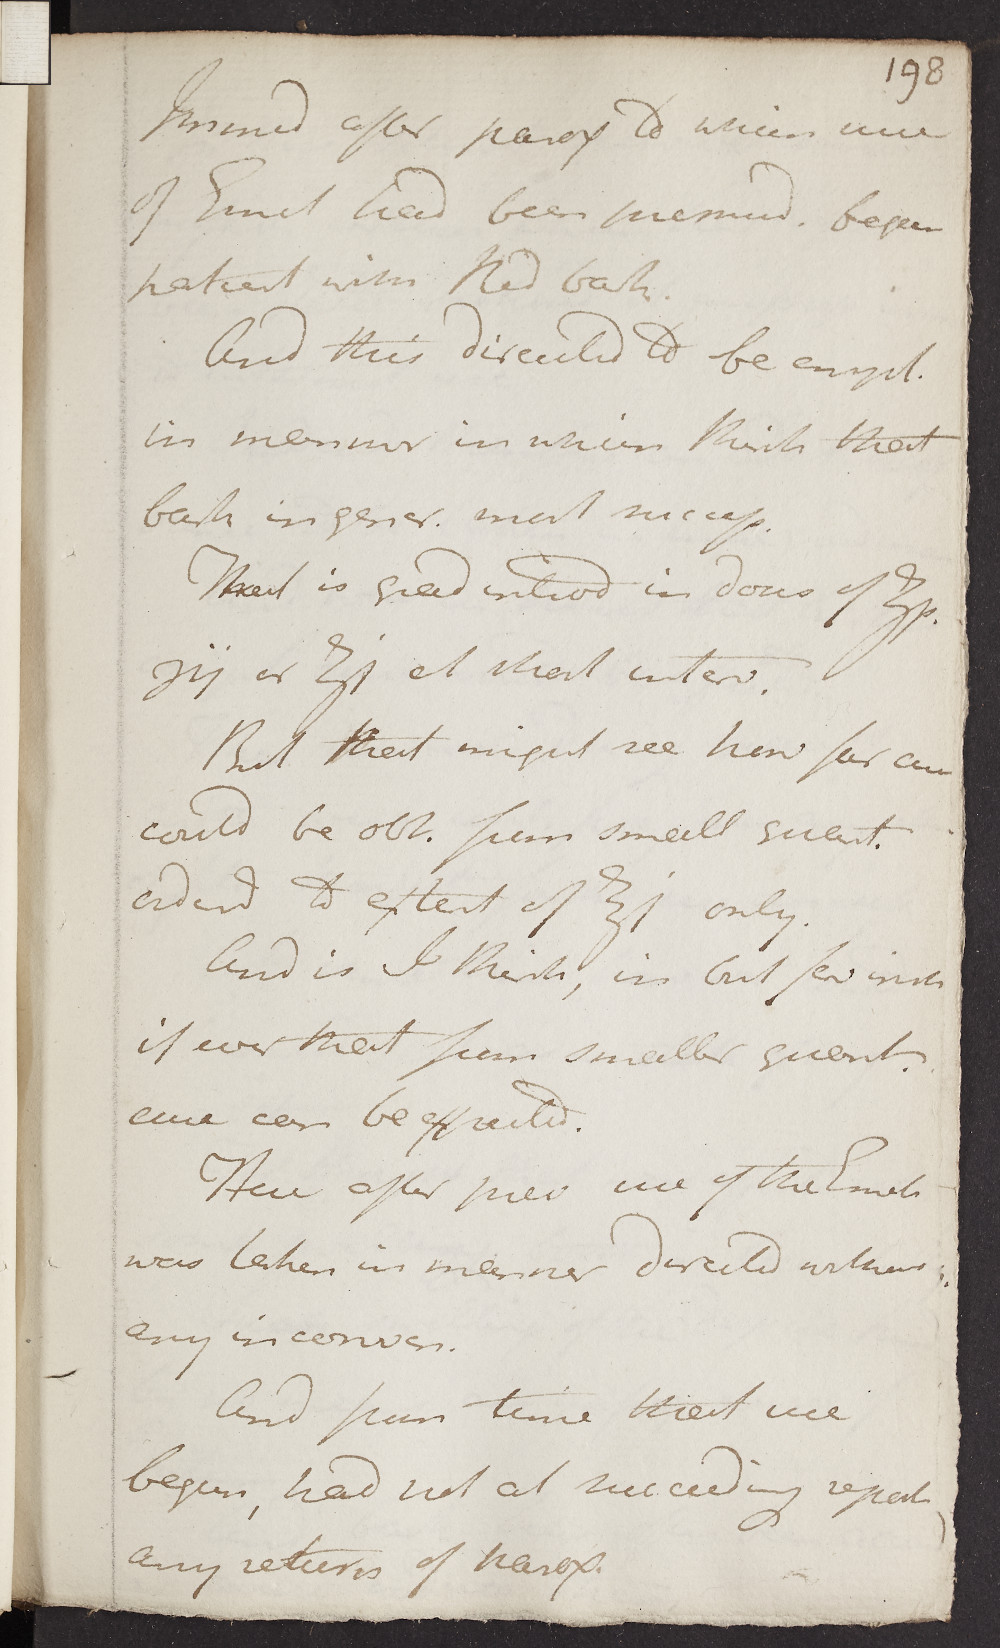 198
Immed after parox to which use
of Emet had been premised. began
patient with Red bark.
And this directed to be empl.
in manner in which think that
bark in gener. most success.
That is grad introd in doses of ℥ss.
ʒij or ℥j at short interv.
But that might see how far cure
could be obt. from small quant.
orderd to extent of ℥j only.
And is I think, in but few inst
if ever that from smaller quant.
cure can be effected.
Here after prev use of the Emet
was taken in manner directed without
any inconven.
And from time that use
begun, had not at succeeding report
any returns of parox.